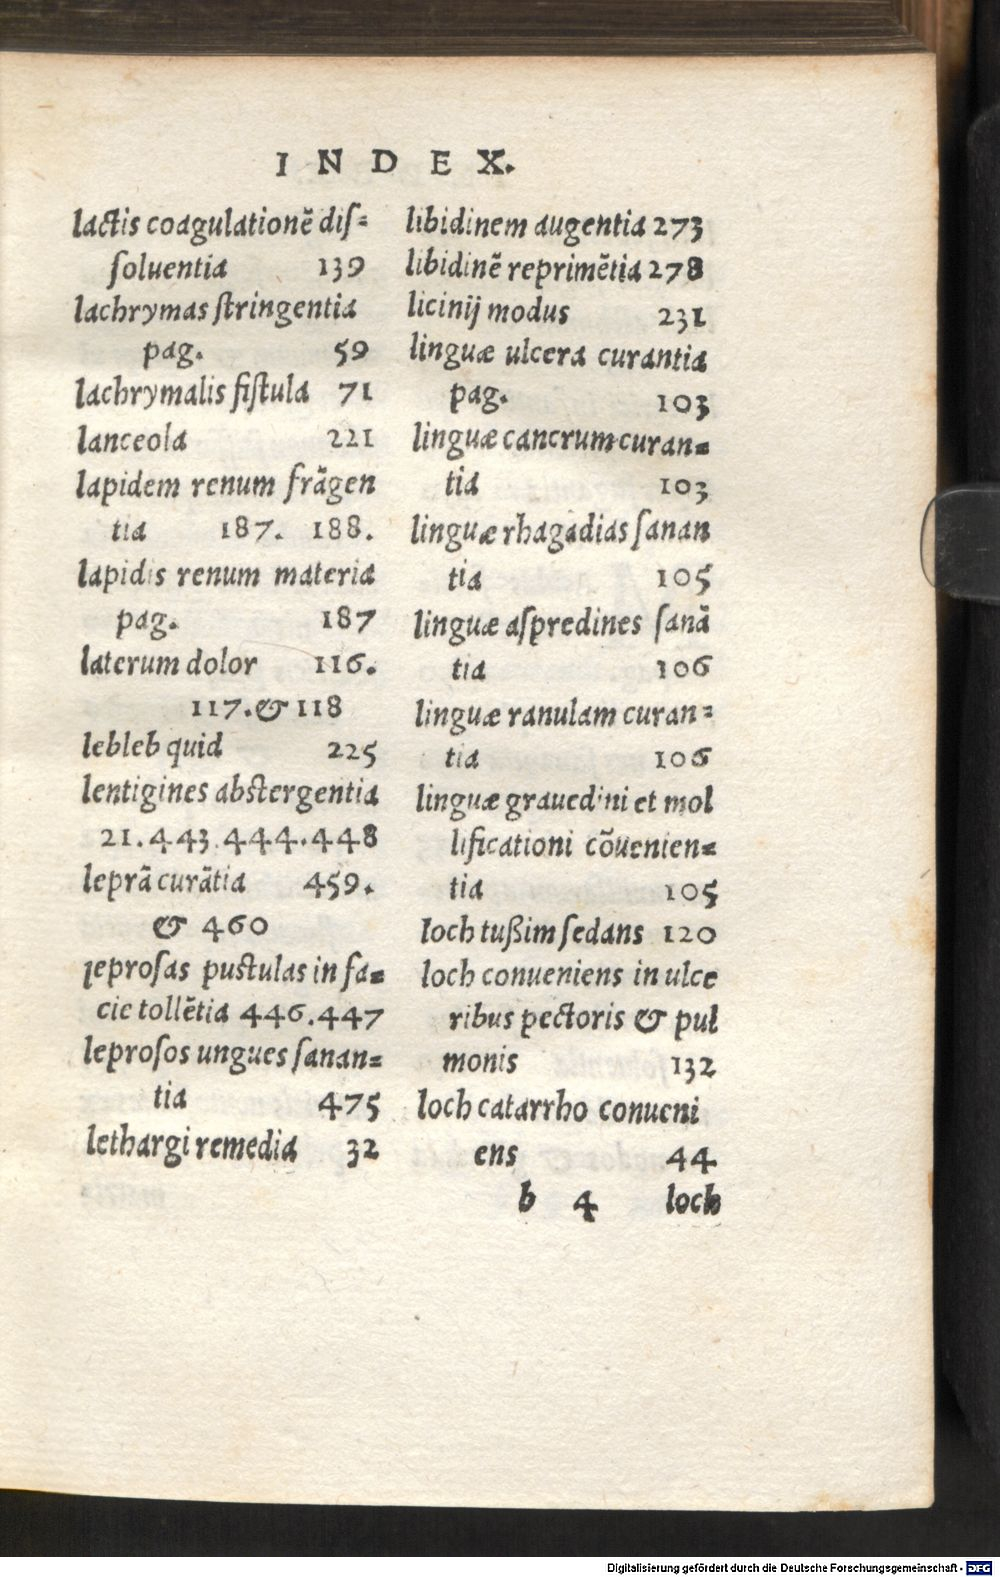 INDEX.
lactis coagulationẽ diſ-
ſoluentia 139
lachrymas ſtringentia
pag. 59
lachrymalis fiſtula 71
lanceola 221
lapidem renum frãgen
tia 187. 188.
lapidis renum materia
pag. 187
laterum dolor 116.
117.& 118
lebleb quid 225
lentigines abſtergentia
21.443.444.448
leprã curãtia 459.
& 460
leproſas puſtulas in fa-
cie tollẽtia 446.447
leproſos ungues ſanan-
tia 475
lethargi remedia 32
libidinem augentia 273
libidinẽ reprimẽtia 278
licinij modus 231
linguæ ulcera curantia
pag. 103
linguæ cancrum curan-
tia 103
linguæ rhagadias ſanan
tia 105
linguæ aſpredines ſanã
tia 106
linguæ ranulam curan-
tia 106
linguæ grauedini et mol
lificationi cõuenien-
tia 105
loch tußim ſedans 120
loch conueniens in ulce
ribus pectoris & pul
monis 132
loch catarrho conueni
ens 44
b 4 loch
Digitalisierung gefördert durch die Deutsche Forschungsgemeinschaft - DFG